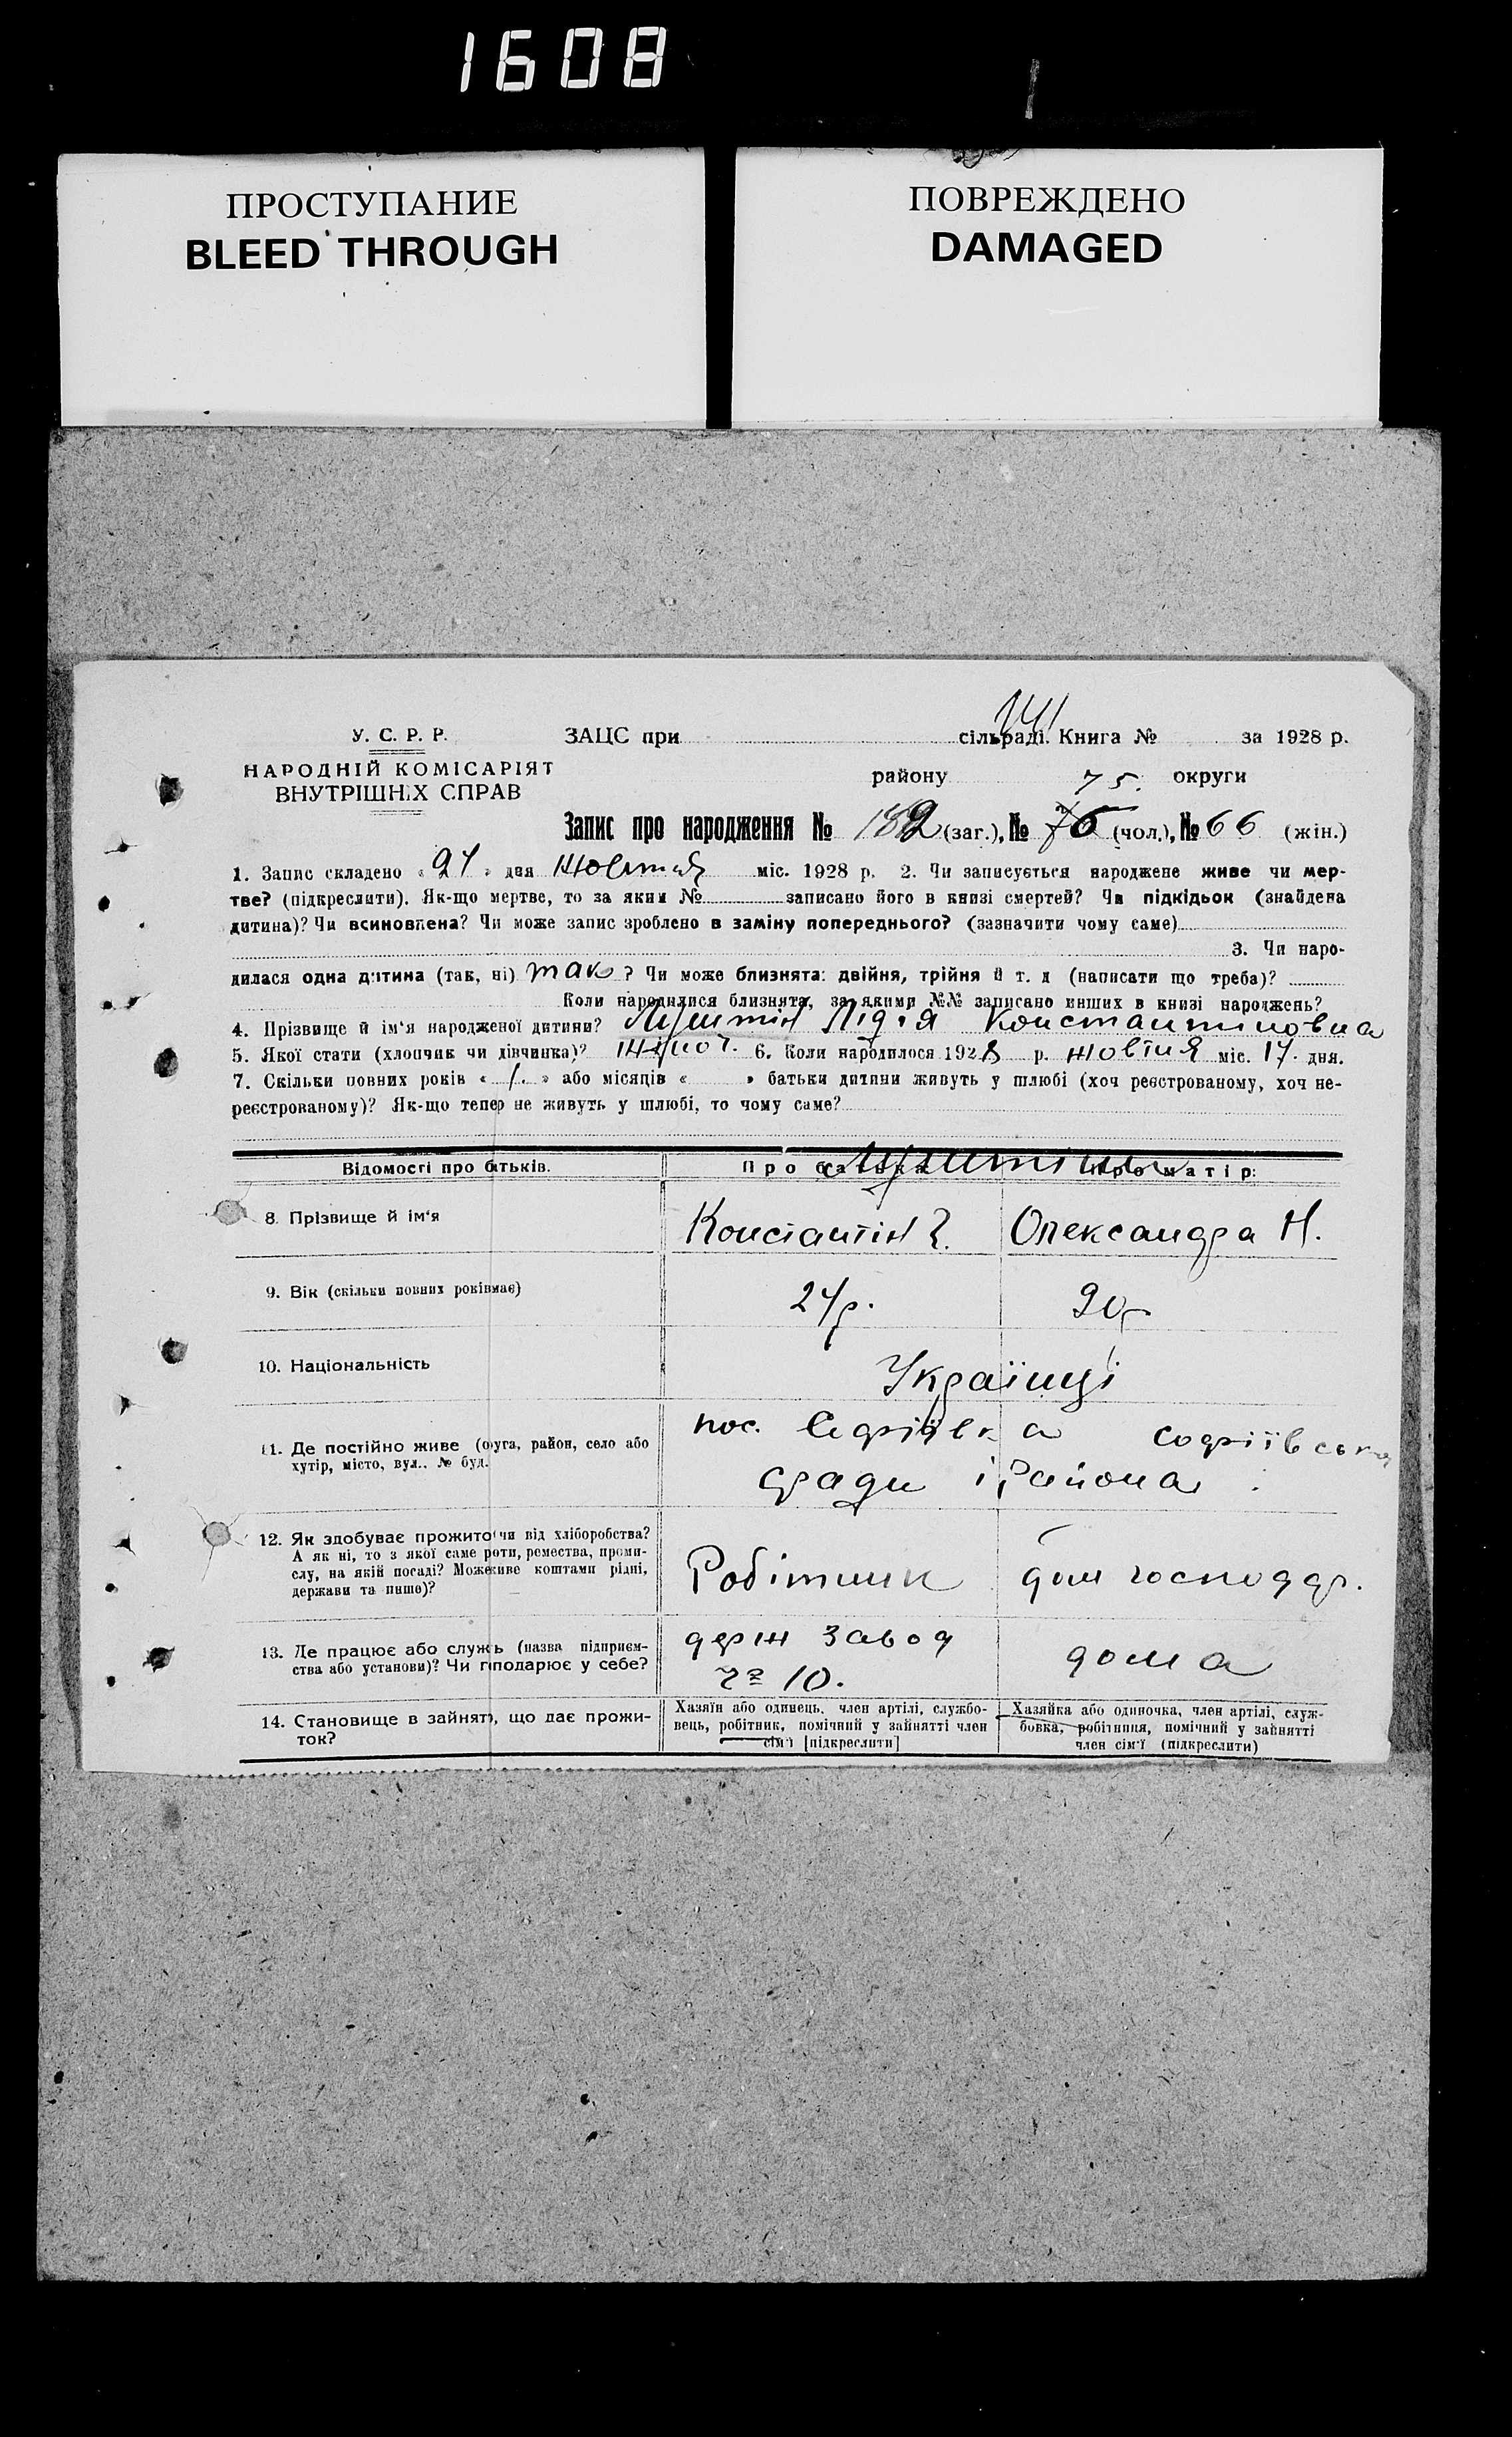 1608
ПРОСТУПАНИЕ
BLEED THROUGH
ПОВРЕЖДЕНО
DAMAGED
141
У. С. Р. Р.
ЗАЦС при сільраді. Книга № за 1928 р.
НАРОДНІЙ КОМІСАРІЯТ
ВНУТРІШНІХ СПРАВ
району 75. округи
Запис про народження № 182 (заг.), № 76 (чол.), № 66 (жін.)
1. Запис складено « » дня жовтня міс. 1928 р. 2. Чи записується народжене живе чи мер-
тве? (підкреслити). Як-що мертве, то за яким № записано його в книзі смертей? Чи підкідьок (знайдена
дитина)? Чи всиновлена? Чи може запис зроблено в заміну попереднього? (зазначити чому саме)
3. Чи наро-
дилася одна дитина (так, ні) так ? Чи може близнята: двійня, трійня й т. д (написати що треба)?
Коли народилися близнята, за якими №№ записано инших в книзі народжень?
4. Прізвище й ім'я народженої дитини? Лідія Константиновна
5. Якої стати (хлопчик чи дівчинка)? жіноч. 6. Коли народилося 1928 р. жовтня міс. 17. дня.
7. Скільки повних років « 1. » або місяців « » батьки дитини живуть у шлюбі (хоч реєстрованому, хоч не-
реєстрованому)? Як-що тепер не живуть у шлюбі, то чому саме?
Відомості про батьків.
Про батька
Про матір:
8. Прізвище й ім'я
Константін
Олександра Н.
9. Вік (скільки повних років має)
24р.
20р
10. Національність
Українці
11. Де постійно живе (округа, район, село або
хутір, місто, вул.. № буд.
пос. Софіївка Софіївська
сради і Района
12. Як здобуває прожиток чи від хліборобства?
А як ні, то з якої саме роботи, ремества, проми-
слу, на якій посаді? Може живе коштами рідні,
держави та инше)?
Робітник
дом господар.
13. Де працює або служить (назва підприєм-
ства або установи)? Чи господарює у себе?
держ завод
№ 10.
дома
14. Становище в зайнятті, що дає прожи-
ток?
Хазяїн або одинець, член артілі, службо-
вець, робітник, помічний у зайнятті член
сім'ї [підкреслити]
Хазяйка або одиночка, член артілі, служ-
бовка, робітниця, помічний у зайнятті
член сім'ї (підкреслити)